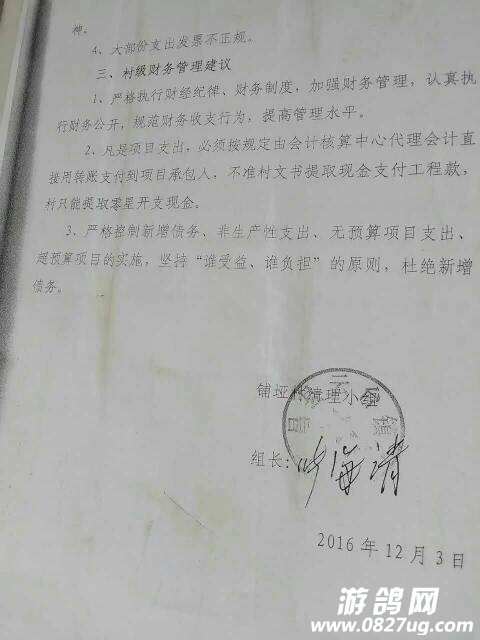 神。
4、大部份支出发票不正规。
三、村级财务管理建议
1、严格执行财经纪律、财务制度，加强财务管理，认真执
行财务公开，规范财务收支行为，提高管理水平。
2、凡是项目支出，必须按规定由会计核算中心代理会计直
接用转账支付到项目承包人，不准村文书提取现金支付工程款，
村只能提取零星开支现金。
3、严格控制新增债务、非生产性支出、无预算项目支出、
超预算项目的实施，坚持“谁受益、谁负担”的原则，杜绝新增
债务。
铺垭村清理小组
组长：
海清
2016 年 12 月 3 日
游鸽网
www.0827ug.com